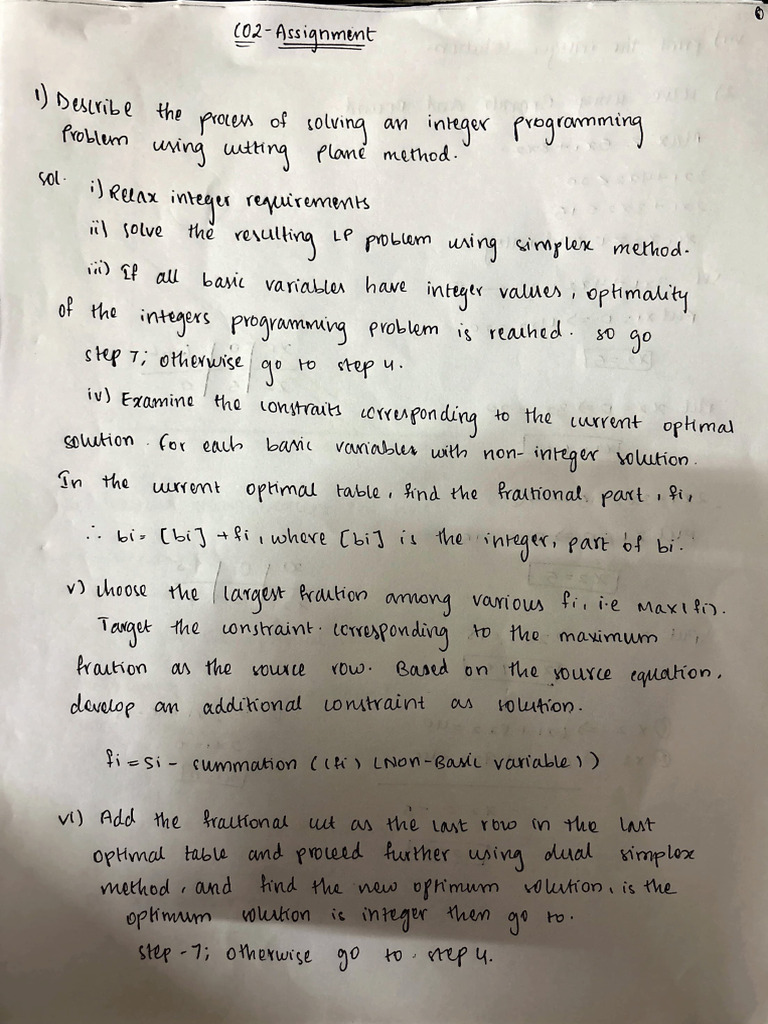 CO2-Assignment
1) Describe the process of solving an integer programming
Problem using cutting plane method.
sol. i) Relax integer requirements
ii) solve the resulting LP problem using simplex method.
iii) If all basic variables have integer values, optimality
of the integers programming problem is reached. so go
step 7; otherwise go to step 4.
iv) Examine the constraits corresponding to the current optimal
solution. for each basic variables with non-integer solution.
In the current optimal table, find the fractional part, fi,
∴ bi = [bi] + fi, where [bi] is the integer, part of bi.
v) choose the largest fraction among various fi, i.e Max(fi).
Target the constraint. corresponding to the maximum
fraction as the source row. Based on the source equation,
develop an additional constraint as solution.
fi = Si - summation ((fi) (Non-Basic variable))
vi) Add the fractional cut as the last row in the last
optimal table and proceed further using dual simplex
method, and find the new optimum solution, is the
optimum solution is integer then go to.
step-7; otherwise go to step 4.